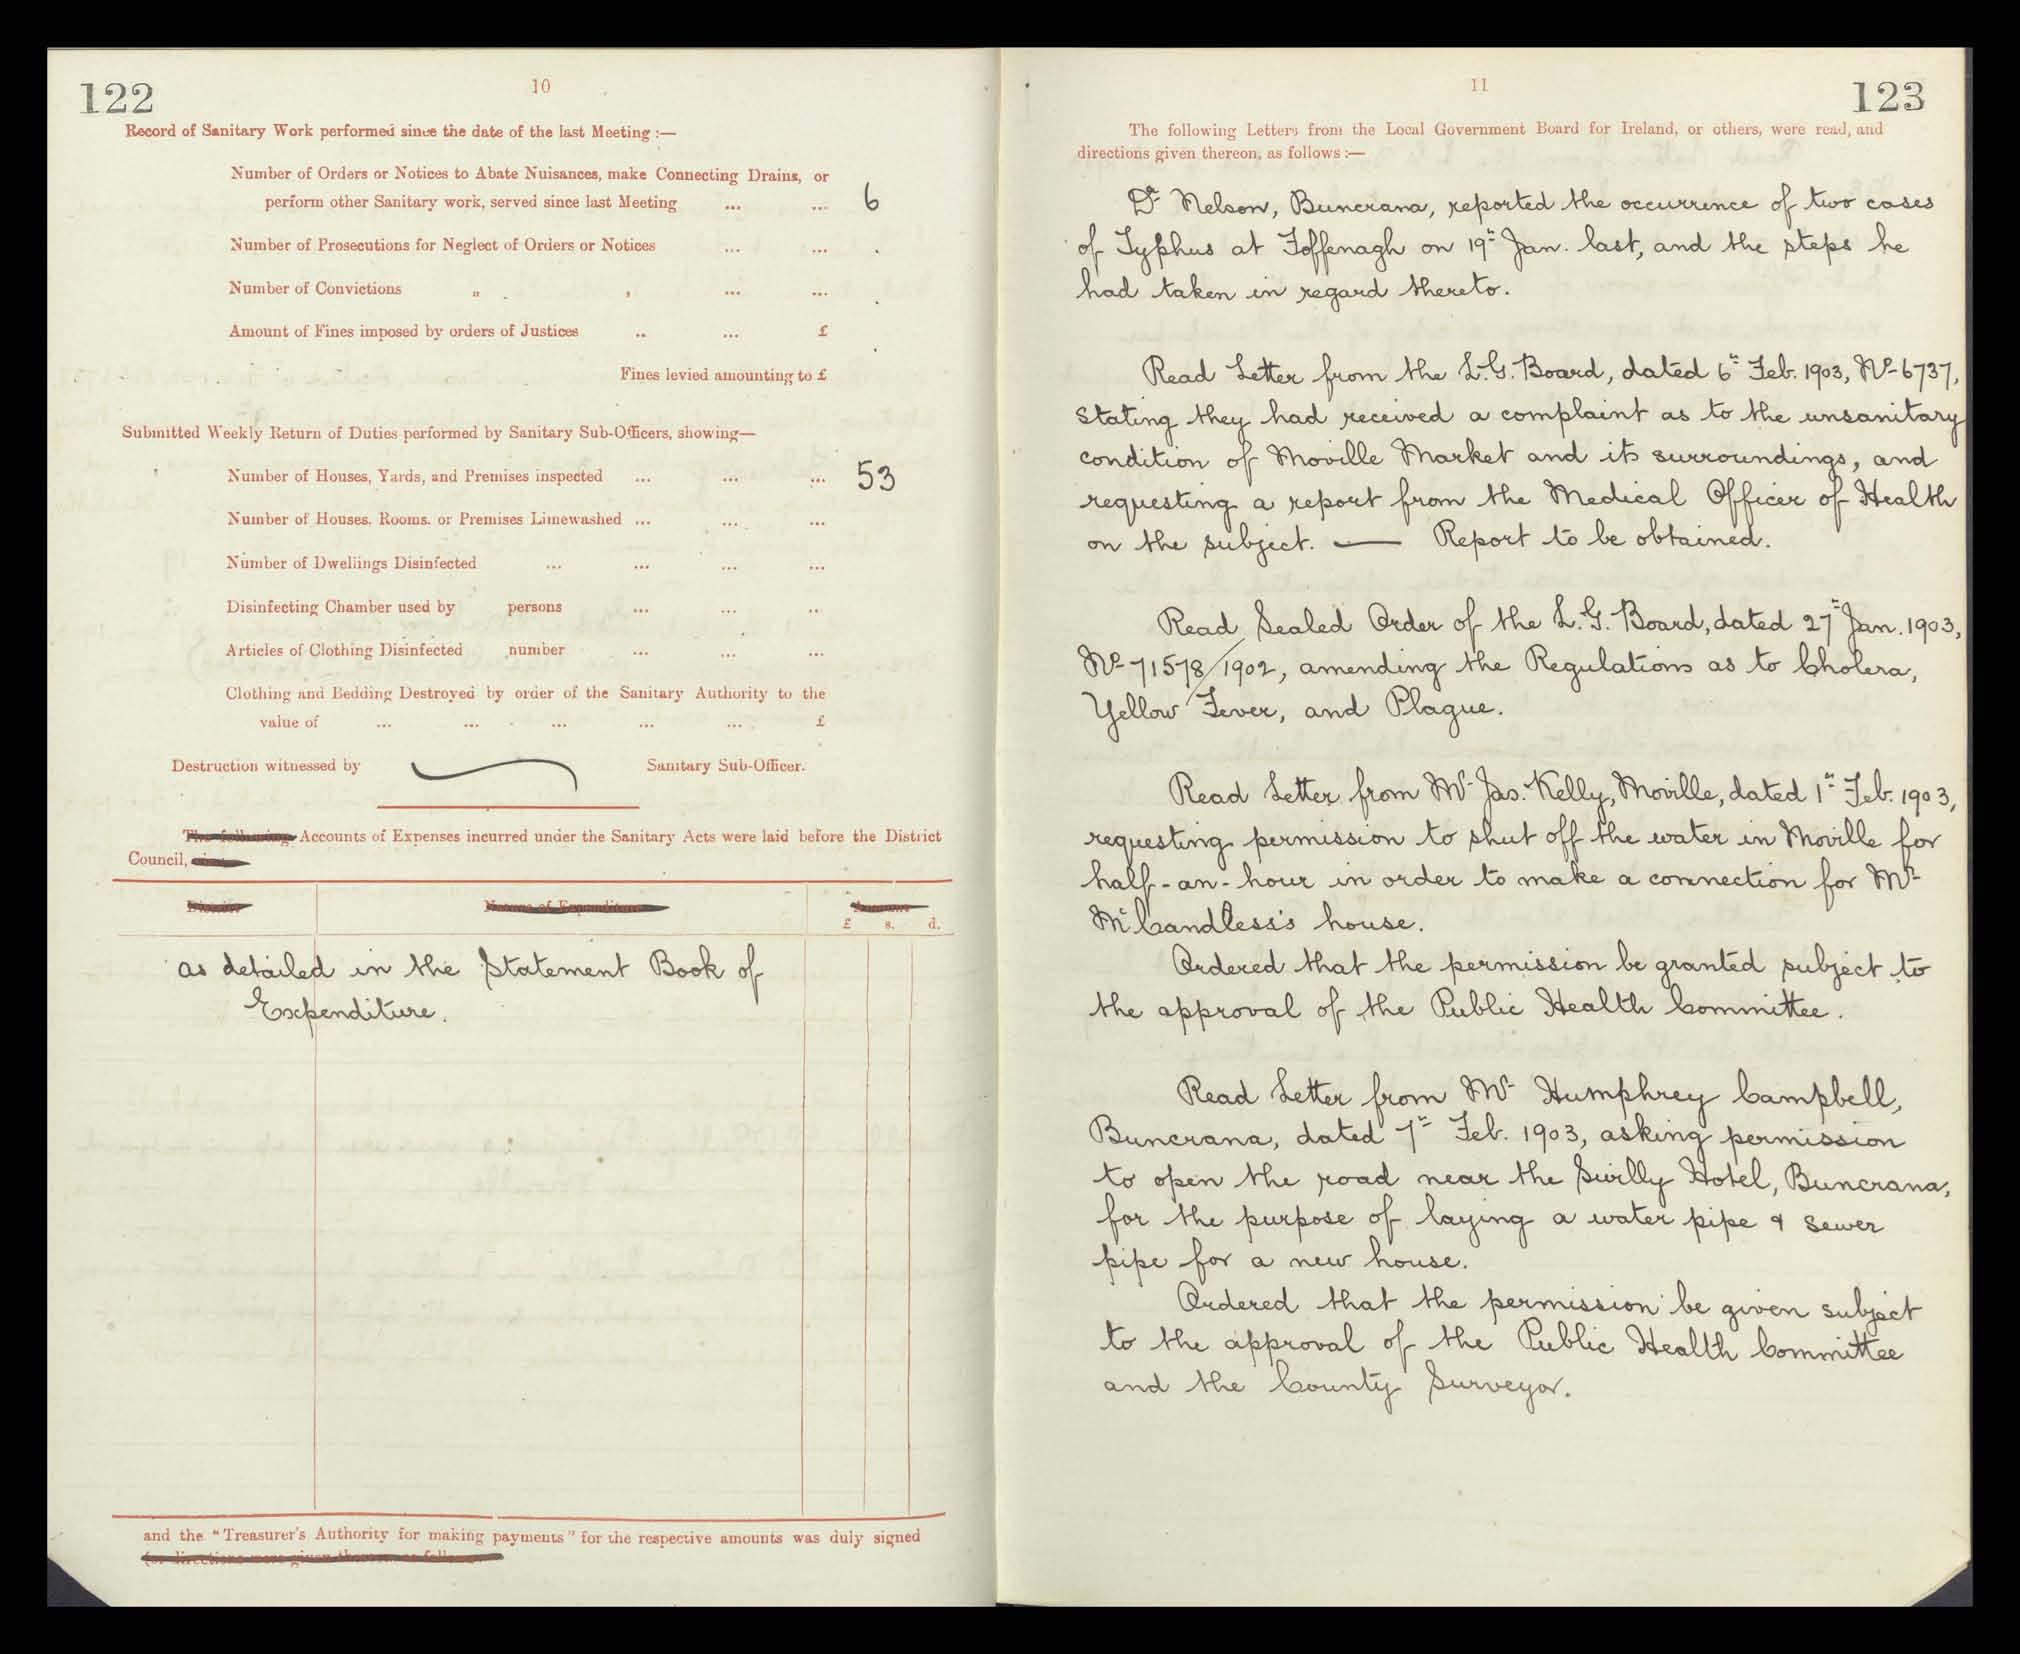 122
10
Record of Sanitary Work performed since the date of the last Meeting :—
Number of Orders or Notices to Abate Nuisances, make Connecting Drains, or
perform other Sanitary work, served since last Meeting ... ... 6
Number of Prosecutions for Neglect of Orders or Notices ... ...
Number of Convictions " , ... ...
Amount of Fines imposed by orders of Justices .. ... £
Fines levied amounting to £
Submitted Weekly Return of Duties performed by Sanitary Sub-Officers, showing—
Number of Houses, Yards, and Premises inspected ... ... ... 53
Number of Houses. Rooms. or Premises Limewashed ... ... ...
Number of Dwellings Disinfected ... ... ... ...
Disinfecting Chamber used by persons ... ... ..
Articles of Clothing Disinfected number ... ... ...
Clothing and Bedding Destroyed by order of the Sanitary Authority to the
value of ... ... ... ... ... £
Destruction witnessed by Sanitary Sub-Officer.
The following Accounts of Expenses incurred under the Sanitary Acts were laid before the District
Council,
District Nature of Expenditure Amount
£ s. d.
as detailed in the Statement Book of
Expenditure.
and the "Treasurer's Authority for making payments" for the respective amounts was duly signed
(or directions were given thereon as follows
11
123
The following Letters from the Local Government Board for Ireland, or others, were read, and
directions given thereon, as follows :—
Dr Nelson, Buncrana, reported the occurrence of two cases
of Typhus at Foffenagh on 19th Jan. last, and the steps he
had taken in regard thereto.
Read Letter from the L.G. Board, dated 6th Feb. 1903, No 6737,
stating they had received a complaint as to the unsanitary
condition of Moville Market and its surroundings, and
requesting a report from the Medical Officer of Health
on the subject. — Report to be obtained.
Read Sealed Order of the L.G. Board, dated 27th Jan. 1903,
No 71578/1902, amending the Regulations as to Cholera,
Yellow Fever, and Plague.
Read Letter from Mr Jas. Kelly, Moville, dated 1st Feb. 1903,
requesting permission to shut off the water in Moville for
half-an-hour in order to make a connection for Mr
McCandless's house.
Ordered that the permission be granted subject to
the approval of the Public Health Committee.
Read Letter from Mr Humphrey Campbell,
Buncrana, dated 7th Feb. 1903, asking permission
to open the road near the Swilly Hotel, Buncrana,
for the purpose of laying a water pipe & sewer
pipe for a new house.
Ordered that the permission be given subject
to the approval of the Public Health Committee
and the County Surveyor.